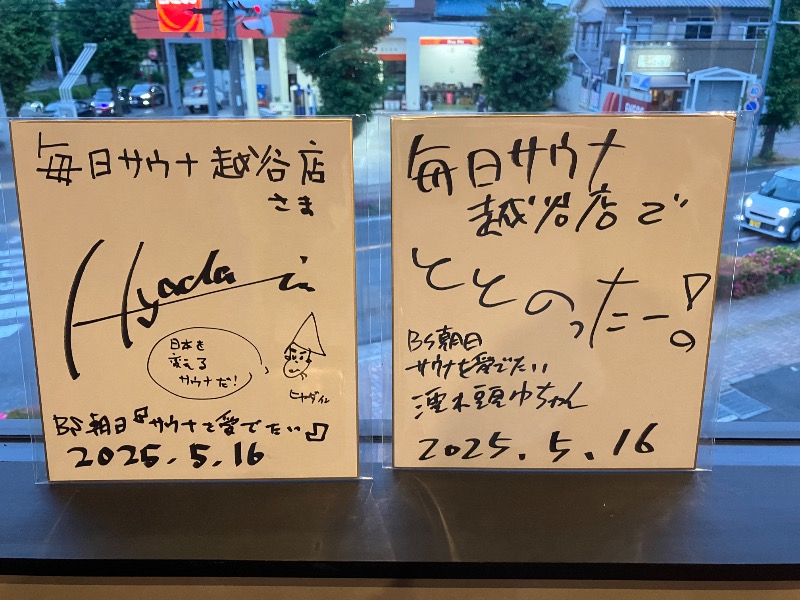 毎日サウナ越谷店
さま
Hyada in
日本を
変える
サウナだ!
ヒャダイン
BS朝日『サウナを愛でたい』
2025.5.16
毎日サウナ
越谷店で
ととのったー!
BS朝日
サウナを愛でたい
濡れ頭巾ちゃん
2025.5.16